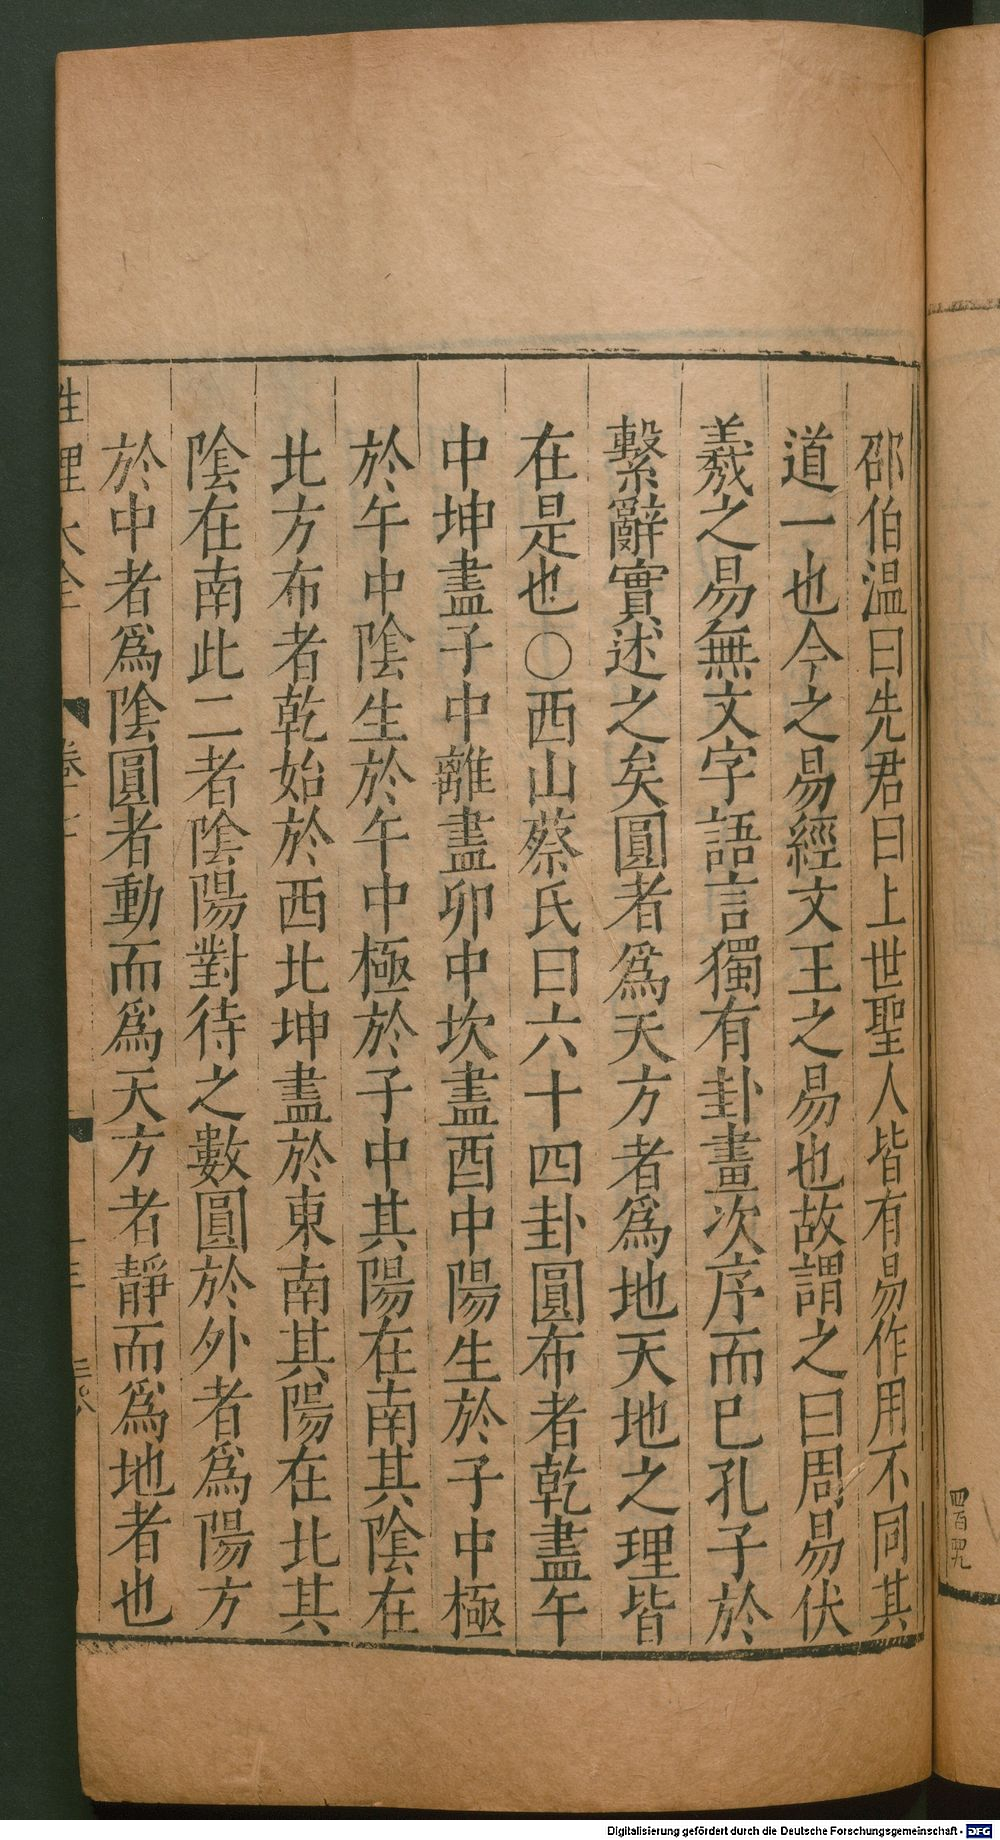 邵伯温曰先君曰上世聖人皆有易作用不同其
道一也今之易經文王之易也故謂之曰周易伏
羲之易無文字語言獨有卦畫次序而已孔子於
繫辭實述之矣圓者爲天方者爲地天地之理皆
在是也○西山蔡氏曰六十四卦圓布者乾盡午
中坤盡子中離盡卯中坎盡酉中陽生於子中極
於午中陰生於午中極於子中其陽在南其陰在
北方布者乾始於西北坤盡於東南其陽在北其
陰在南此二者陰陽對待之數圓於外者爲陽方
於中者爲陰圓者動而爲天方者靜而爲地者也
性理大全
Digitalisierung gefördert durch die Deutsche Forschungsgemeinschaft - DFG